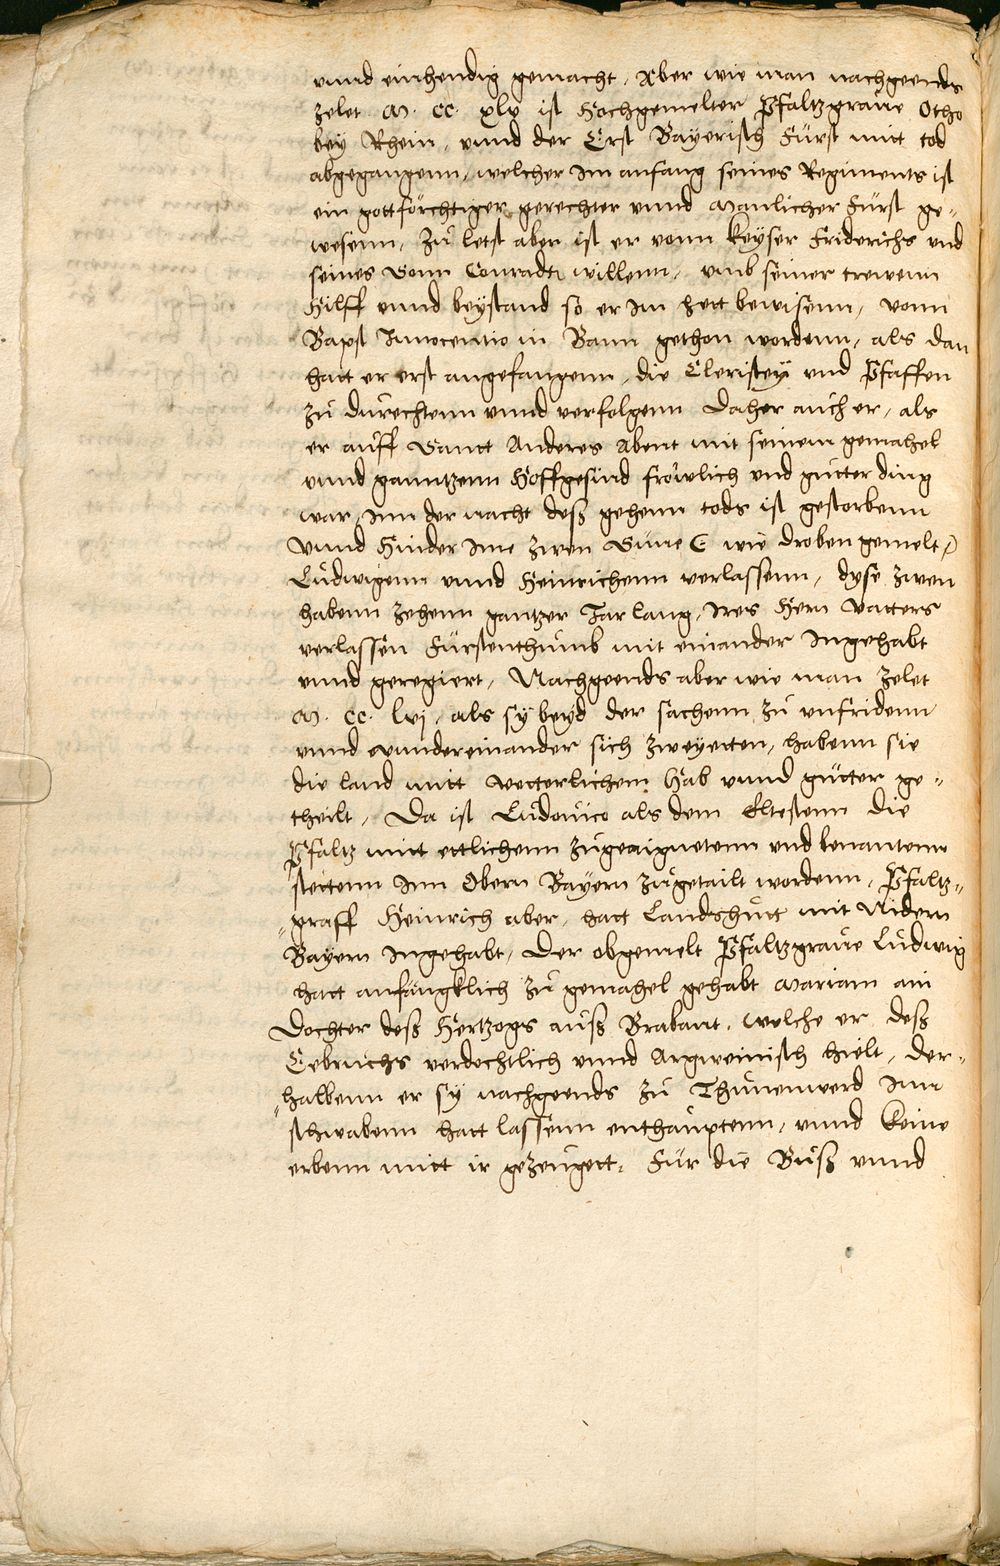 vnnd einhendig gemacht, Aber wie man nachgeends
zelet M. CC. xlv ist Hochgemelter Pfaltzgraue Otho
bey Rhein, vnnd der Erst Bayerisch Fürst mitt tod
abgegangenn, welcher Im anfang seines Regiments ist
ein gottförchtiger gerechter vnnd Manlicher Fürst ge-
wesenn, Zu letst aber ist er vonn Keyser Friderichs vnd
seines Sonn Conradts willenn, vmb seiner trewenn
Hilff vnnd beystand so er Im hett bewisenn, vonn
Bapst Innocentio in Bann gethon wordenn, als dan
hatt er erst angefangenn, die Cleristey vnd Pfaffen
zu durechtenn vnnd verfolgenn Daher auch er, als
er auff Sanct Anderes Abent mit seinem gemahel
vnnd ganntzenn Hoffgesind frowlich vnd gutter ding
war, Inn der nacht deß gehenn tods ist gestorbenn
Vnnd Hinder Ime zwen Süne (wie droben gemelt,)
Ludwigenn vnnd Heinrichenn verlassenn, dyse zwen
habenn zehenn gantzer Jar lang, Ires Hern Vatters
verlassen Fürstenthumb mit einander Ingehabt
vnnd geregiert, Nachgeends aber wie man zelet
M. CC. lvj, als sy beyd der sachenn zu vnfridenn
vnnd vundereinander sich zweyetten, habenn sie
die land mitt vetterlichem Hab vnnd gütter ge-
theilt, Da ist Ludouico als dem Eltestenn die
Pfaltz mitt ettlichenn zugeaignetenn vnd benantenn
stettenn Inn Obern Bayern zugetailt wordenn, Pfaltz-
graff Heinrich aber, hatt Landshutt mit Nidern
Bayern Ingehabt, Der obgemelt Pfaltzgraue Ludwig
hatt anfängklich zu gemahel gehabt Mariam ain
Dochter deß Hertzogs auß Brabant, welche er deß
Eebruchs verdechtlich vnnd Argweinisch hielt, der-
halbenn er sy nachgeends zu Thunenwerd Inn
schwabenn hatt lassenn enthauptenn, vnnd keine
erbenn mitt ir gezeugett, Für die Buß vnnd